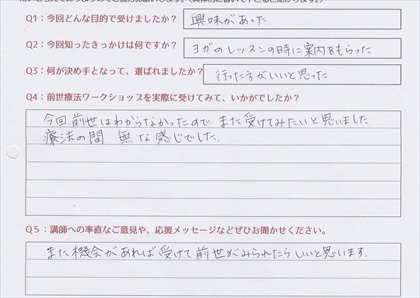 Q1：今回どんな目的で受けましたか？ 興味があった
Q2：今回知ったきっかけは何ですか？ ヨガのレッスンの時に案内をもらった
Q3：何が決め手となって、選ばれましたか？ 行った方がいいと思った
Q4：前世療法ワークショップを実際に受けてみて、いかがでしたか？
今回前世はわからなかったので また受けてみたいと思いました。
療法の間 無な感じでした。
Q5：講師への率直なご意見や、応援メッセージなどぜひお聞かせください。
また機会があれば受けて前世がみられたらいいと思います。